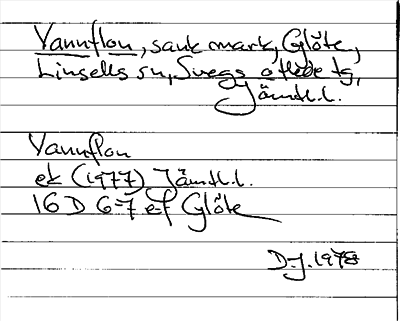 Vannflon, sank mark, Glöte,
Linsells sn, Svegs tg,
Jämtl.l.
Vannflon
ek (1977) Jämtl.l.
16 D 6-7 e-f Glöte
D.J. 1978